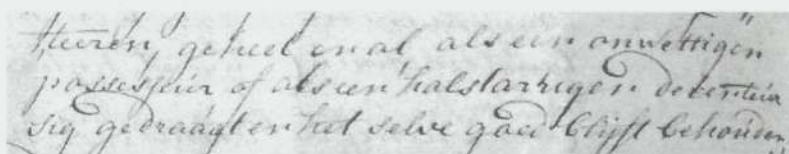 Heeren, geheel en al als een onwettigen
possesseur of als een halstarrigen detenteur
sig gedraagt en het selve goed blijft behouden,